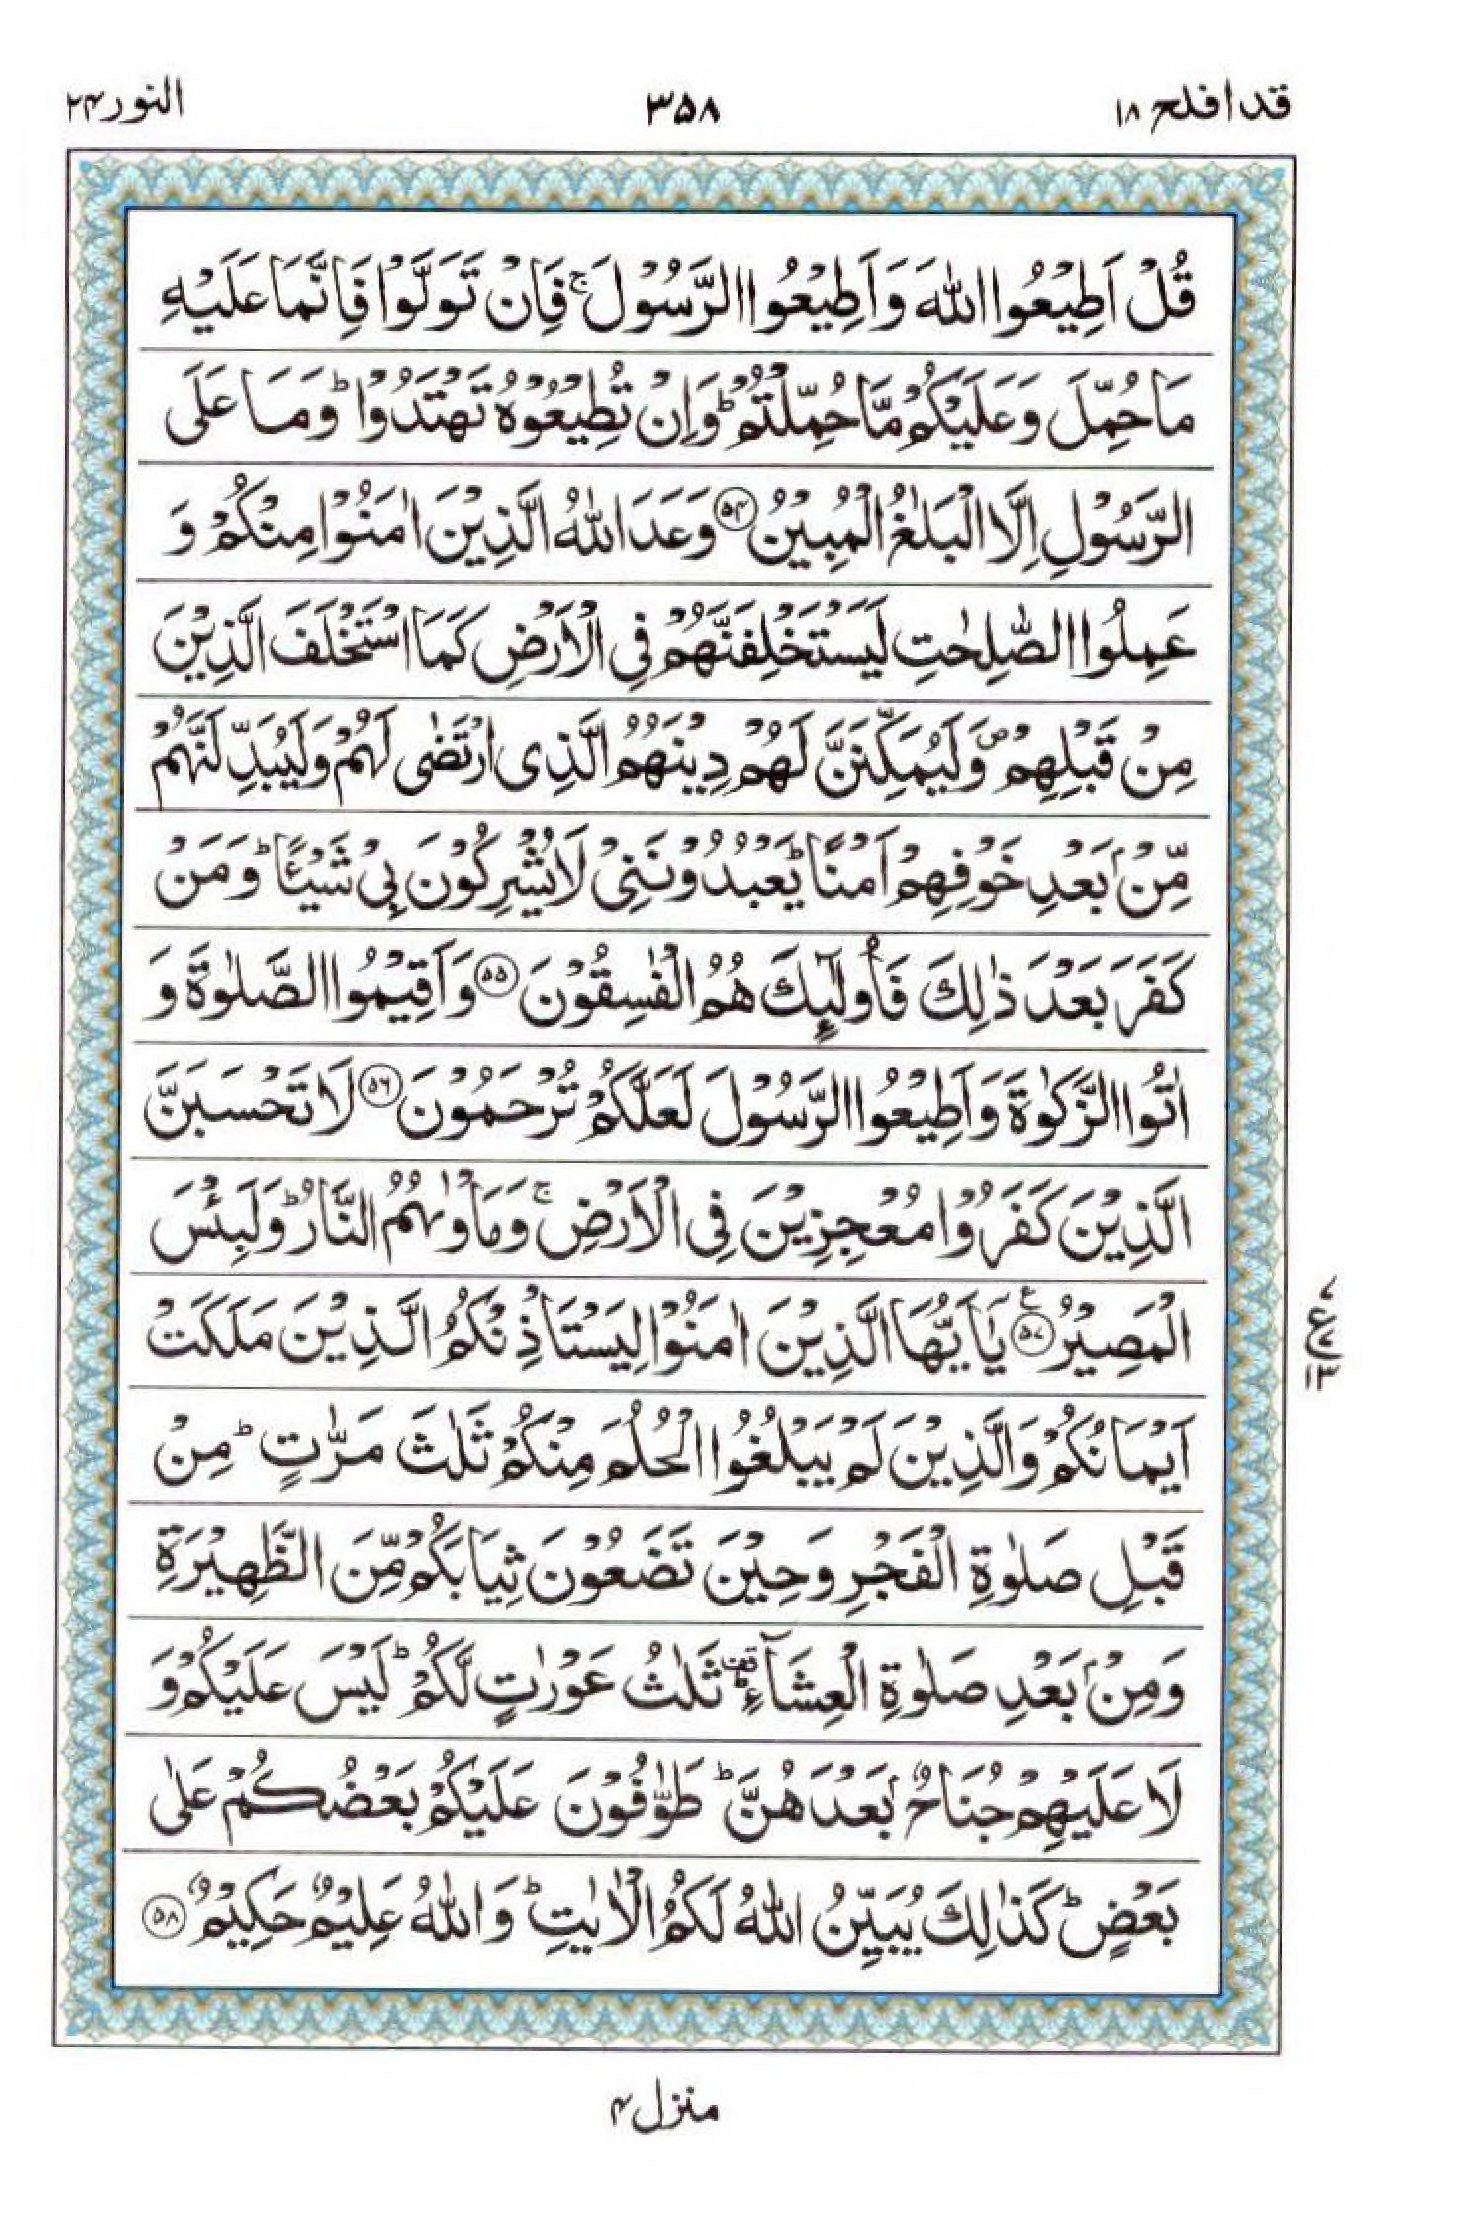 قد افلح ۱۸
۳۵۸
النور ۲۴
قُلْ اَطِيْعُوا اللّٰهَ وَاَطِيْعُوا الرَّسُوْلَ ۚ فَاِنْ تَوَلَّوْا فَاِنَّمَا عَلَيْهِ
مَا حُمِّلَ وَعَلَيْكُمْ مَّا حُمِّلْتُمْ ؕ وَاِنْ تُطِيْعُوْهُ تَهْتَدُوْا ؕ وَمَا عَلَى
الرَّسُوْلِ اِلَّا الْبَلٰغُ الْمُبِيْنُ ۵۴ وَعَدَ اللّٰهُ الَّذِيْنَ اٰمَنُوْا مِنْكُمْ وَ
عَمِلُوا الصّٰلِحٰتِ لَيَسْتَخْلِفَنَّهُمْ فِي الْاَرْضِ كَمَا اسْتَخْلَفَ الَّذِيْنَ
مِنْ قَبْلِهِمْ ۪ وَلَيُمَكِّنَنَّ لَهُمْ دِيْنَهُمُ الَّذِى ارْتَضٰى لَهُمْ وَلَيُبَدِّلَنَّهُمْ
مِّنْۢ بَعْدِ خَوْفِهِمْ اَمْنًا ؕ يَعْبُدُوْنَنِىْ لَا يُشْرِكُوْنَ بِىْ شَيْـًٔا ؕ وَمَنْ
كَفَرَ بَعْدَ ذٰلِكَ فَاُولٰٓئِكَ هُمُ الْفٰسِقُوْنَ ۵۵ وَاَقِيْمُوا الصَّلٰوةَ وَ
اٰتُوا الزَّكٰوةَ وَاَطِيْعُوا الرَّسُوْلَ لَعَلَّكُمْ تُرْحَمُوْنَ ۵۶ لَا تَحْسَبَنَّ
الَّذِيْنَ كَفَرُوْا مُعْجِزِيْنَ فِى الْاَرْضِ ۚ وَمَاْوٰىهُمُ النَّارُ ؕ وَلَبِئْسَ
الْمَصِيْرُ ۵۷ ع يٰۤاَيُّهَا الَّذِيْنَ اٰمَنُوْا لِيَسْتَاْذِنْكُمُ الَّذِيْنَ مَلَكَتْ
۷
ع
۱۳
اَيْمَانُكُمْ وَالَّذِيْنَ لَمْ يَبْلُغُوا الْحُلُمَ مِنْكُمْ ثَلٰثَ مَرّٰتٍ ؕ مِنْ
قَبْلِ صَلٰوةِ الْفَجْرِ وَحِيْنَ تَضَعُوْنَ ثِيَابَكُمْ مِّنَ الظَّهِيْرَةِ
وَمِنْۢ بَعْدِ صَلٰوةِ الْعِشَآءِ ؕ ثَلٰثُ عَوْرٰتٍ لَّكُمْ ؕ لَيْسَ عَلَيْكُمْ وَ
لَا عَلَيْهِمْ جُنَاحٌۢ بَعْدَهُنَّ ؕ طَوّٰفُوْنَ عَلَيْكُمْ بَعْضُكُمْ عَلٰى
بَعْضٍ ؕ كَذٰلِكَ يُبَيِّنُ اللّٰهُ لَكُمُ الْاٰيٰتِ ؕ وَاللّٰهُ عَلِيْمٌ حَكِيْمٌ ۵۸
منزل ۴